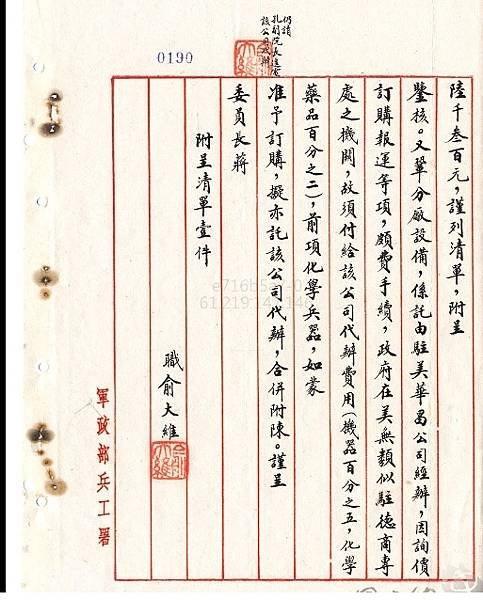 仍請
孔副院長逕電
該公司代辦
0190
陸千叁百元，謹列清單，附呈
鑒核。又鞏分廠設備，係託由駐美華昌公司經辦，因詢價
訂購報運等項，頗費手續，政府在美無類似駐德商專
處之機關，故須付給該公司代辦費用（機器百分之五，化學
藥品百分之二），前項化學兵器，如蒙
准予訂購，擬亦託該公司代辦，合併附陳。謹呈
委員長蔣
附呈清單壹件
職俞大維
軍政部兵工署